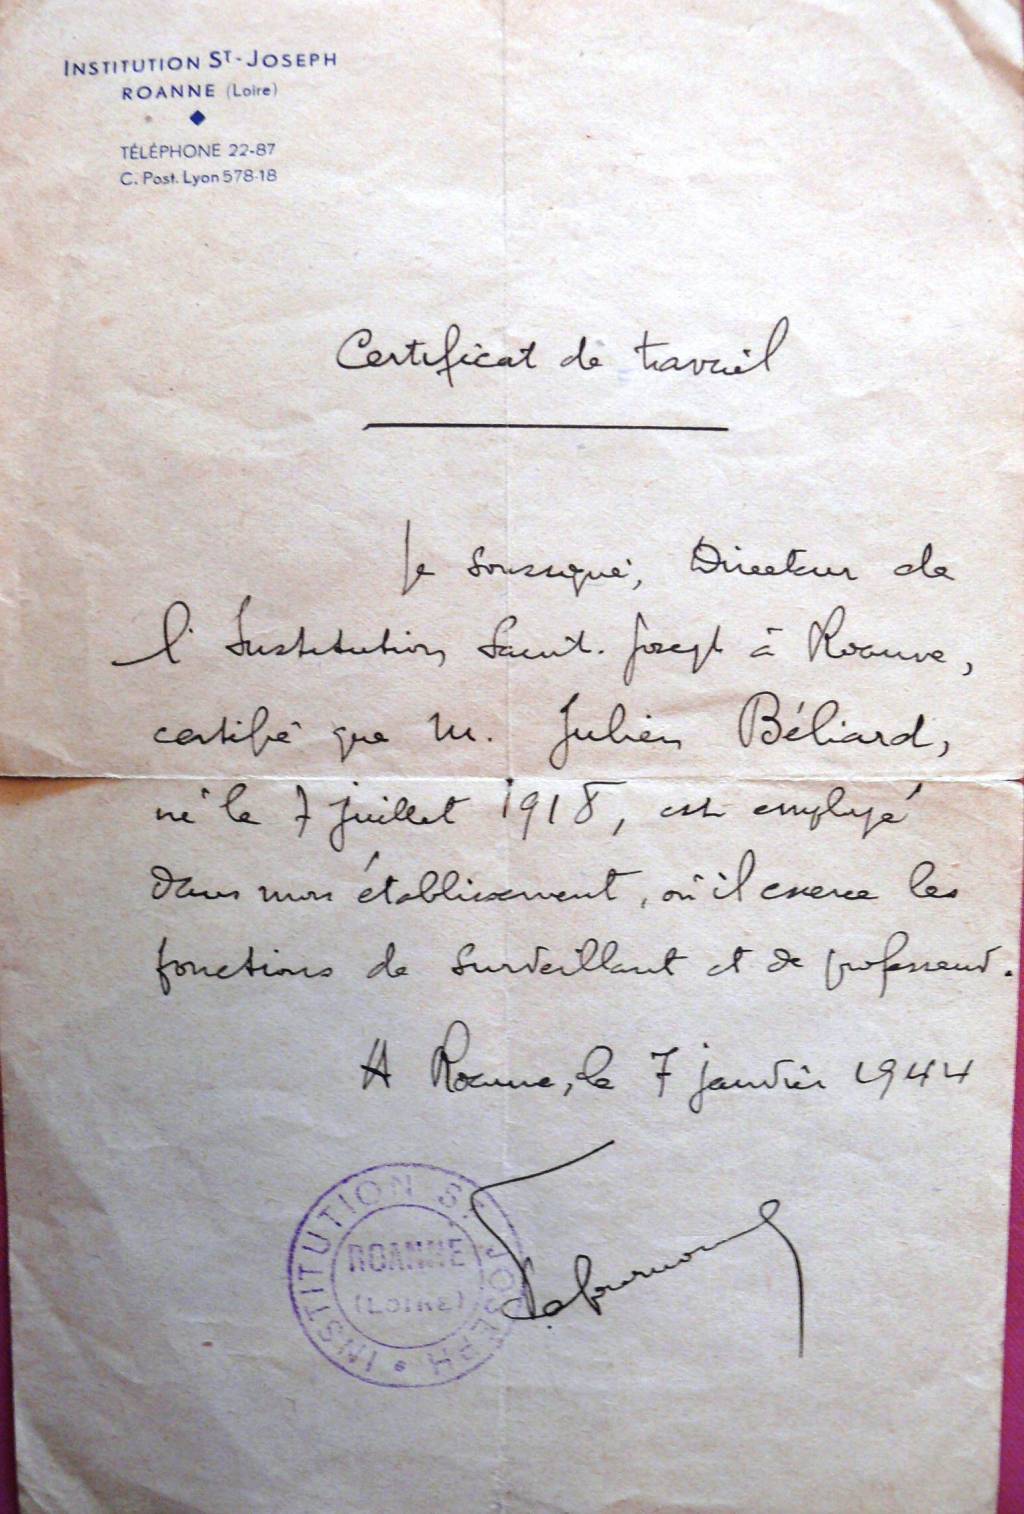 INSTITUTION ST-JOSEPH
ROANNE (Loire)
TÉLÉPHONE 22-87
C. Post. Lyon 578-18
Certificat de travail
Je soussigné, Directeur de
l'Institution Saint-Joseph à Roanne,
certifie que M. Julien Béliard,
né le 7 juillet 1918, est employé
dans mon établissement, où il exerce les
fonctions de surveillant et de professeur.
A Roanne, le 7 janvier 1944
INSTITUTION ST JOSEPH
ROANNE
(LOIRE)